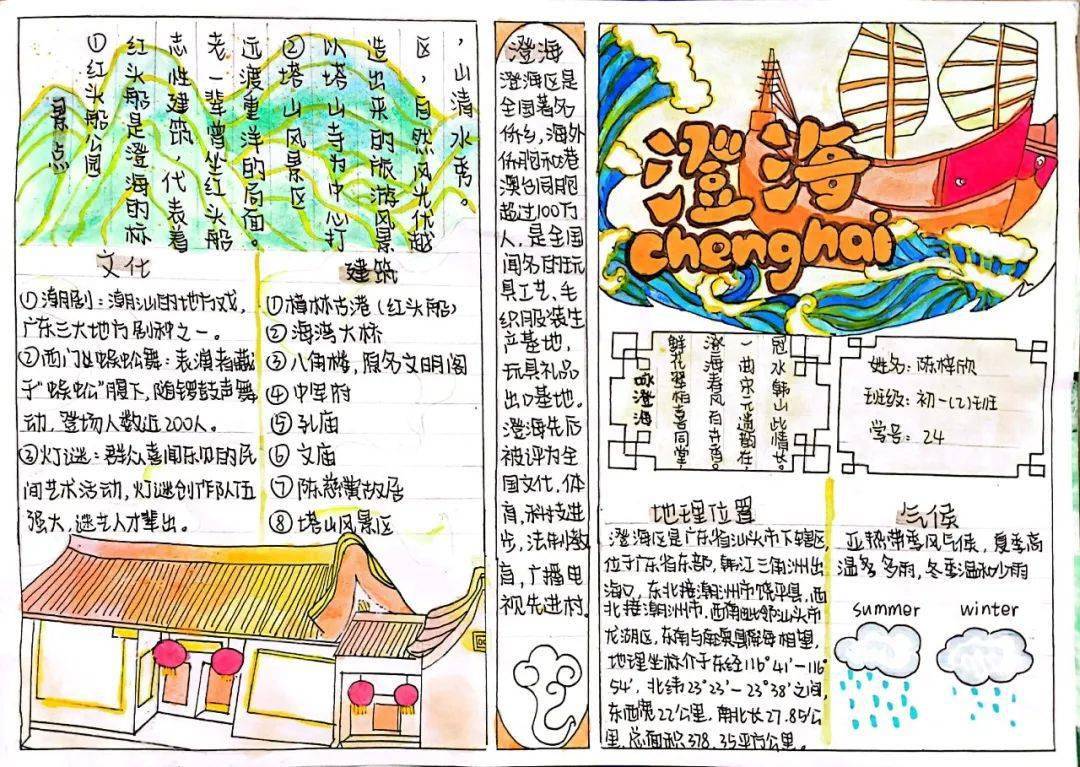 景点
①红头船公园
红头船是澄海的标
志性建筑,代表着
老一辈曾坐红头船
远渡重洋的局面。
②塔山风景区
以塔山寺为中心打
造出来的旅游风景
区,自然风光优越
,山清水秀。
文化
①潮剧:潮汕的地方戏,
广东三大地方剧种之一。
②西门蜈蚣舞:表演者藏
于“蜈蚣”服下,随锣鼓声舞
动,登场人数近200人。
③灯谜:群众喜闻乐见的民
间艺术活动,灯谜创作队伍
强大,谜艺人才辈出。
建筑
①樟林古港(红头船)
②海湾大桥
③八角楼,原名文明阁
④中军府
⑤孔庙
⑥文庙
⑦陈慈黉故居
⑧塔山风景区
澄海
澄海区是
全国著名
侨乡,海外
侨胞和港
澳台同胞
超过100万
人,是全国
闻名的玩
具工艺,毛
织服装生
产基地,
玩具礼品
出口基地。
澄海先后
被评为全
国文化,体
育,科技进
步,法制教
育,广播电
视先进村
澄海
chenghai
咏澄海
鲜花翠柏喜同堂
澄海春风百卉香。
一曲宋元遗韵在,
冠水韩山此情长。
姓名:陈梓欣
班级:初一(2)班
学号:24
地理位置
澄海区是广东省汕头市下辖区,
位于广东省东部,韩江三角洲出
海口,东北接潮州市饶平县,西
北接潮州市,西南毗邻汕头市
龙湖区,东南与南澳县隔海相望,
地理坐标介于东经116°41′-116°
54′,北纬23°23′-23°38′之间,
东西宽22公里,南北长27.85公
里,总面积378.35平方公里。
气候
亚热带季风气候,夏季高
温多雨,冬季温和少雨
summer
winter